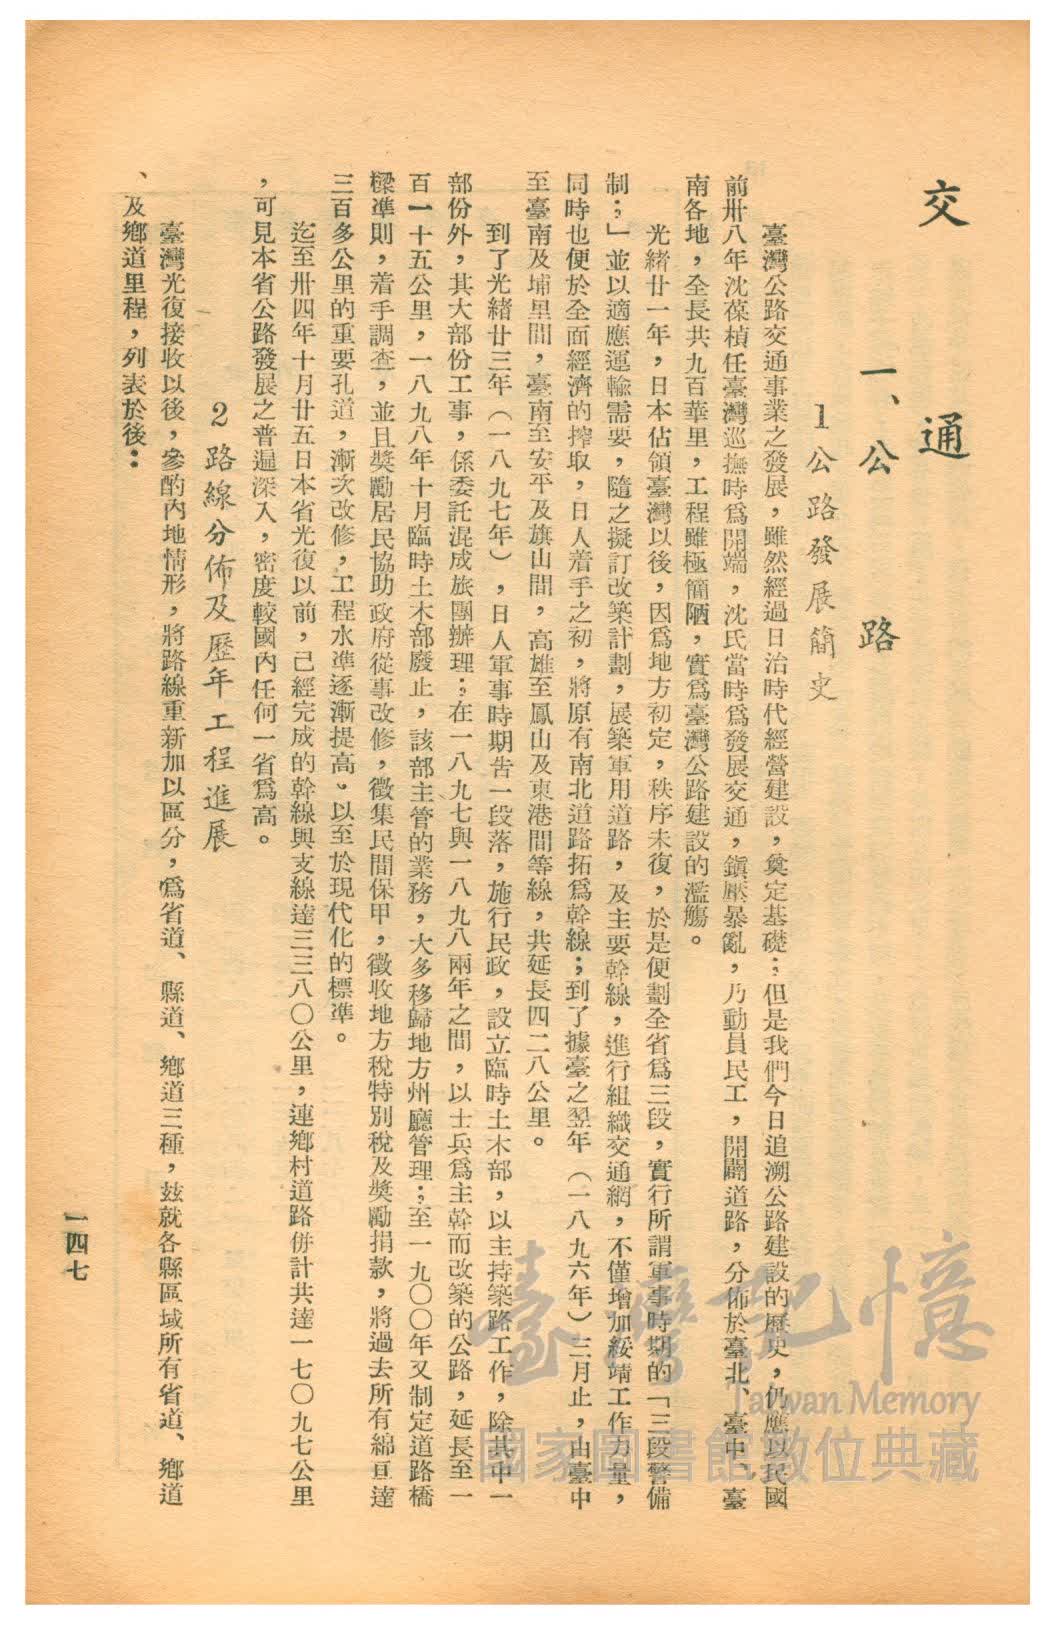 交通
一、公路
1公路發展簡史
臺灣公路交通事業之發展，雖然經過日治時代經營建設，奠定基礎；但是我們今日追溯公路建設的歷史，仍應以民國
前卅八年沈葆楨任臺灣巡撫時爲開端，沈氏當時爲發展交通，鎮壓暴亂，乃動員民工，開闢道路，分佈於臺北、臺中、臺
南各地，全長共九百華里，工程雖極簡陋，實爲臺灣公路建設的濫觴。
光緒廿一年，日本佔領臺灣以後，因爲地方初定，秩序未復，於是便劃全省爲三段，實行所謂軍事時期的「三段警備
制；」並以適應運輸需要，隨之擬訂改築計劃，展築軍用道路，及主要幹線，進行組織交通網，不僅增加綏靖工作力量，
同時也便於全面經濟的搾取，日人着手之初，將原有南北道路拓爲幹線；到了據臺之翌年（一八九六年）三月止，由臺中
至臺南及埔里間，臺南至安平及旗山間，高雄至鳳山及東港間等線，共延長四二八公里。
到了光緒廿三年（一八九七年），日人軍事時期告一段落，施行民政，設立臨時土木部，以主持築路工作，除其中一
部份外，其大部份工事，係委託混成旅團辦理；在一八九七與一八九八兩年之間，以士兵爲主幹而改築的公路，延長至一
百一十五公里，一八九八年十月臨時土木部廢止，該部主管的業務，大多移歸地方州廳管理；至一九〇〇年又制定道路橋
樑準則，着手調查，並且獎勵居民協助政府從事改修，徵集民間保甲，徵收地方稅特別稅及獎勵捐款，將過去所有綿亘達
三百多公里的重要孔道，漸次改修，工程水準逐漸提高，以至於現代化的標準。
迄至卅四年十月廿五日本省光復以前，已經完成的幹線與支線達三三八〇公里，連鄉村道路併計共達一七〇九七公里
，可見本省公路發展之普遍深入，密度較國內任何一省爲高。
2路線分佈及歷年工程進展
臺灣光復接收以後，參酌內地情形，將路線重新加以區分，爲省道、縣道、鄉道三種，玆就各縣區域所有省道、鄉道
、及鄉道里程，列表於後：
一四七
臺灣記憶
Taiwan Memory
國家圖書館數位典藏